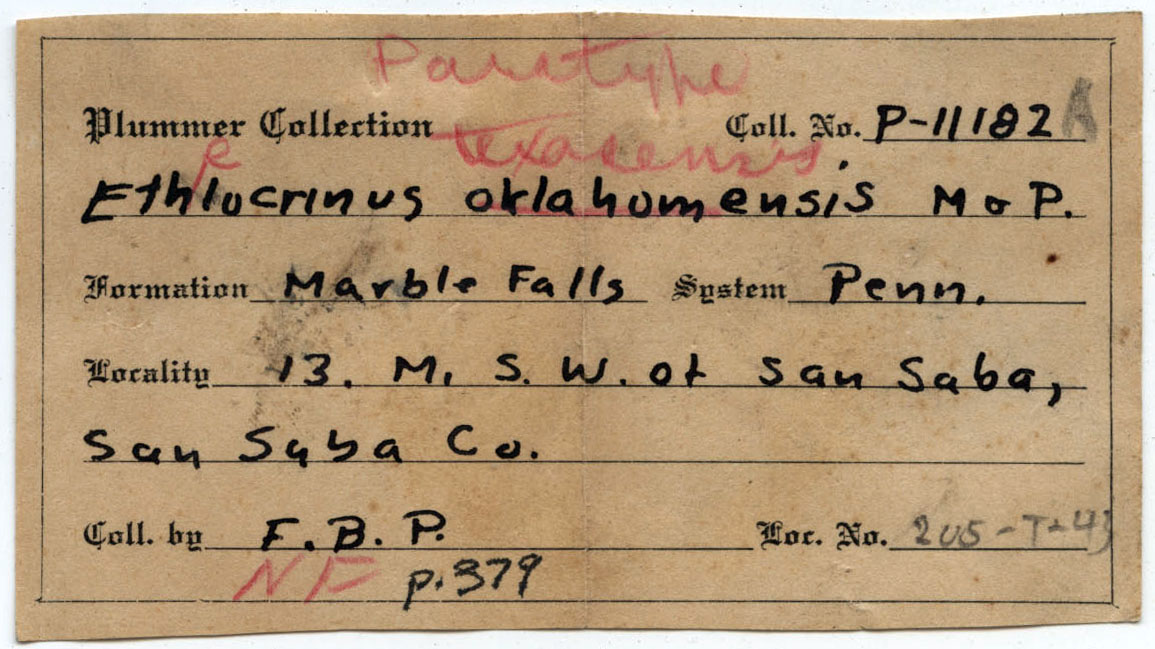 Paratype
Plummer Collection Coll. No. P-11182 A
e texasensis
Ethlocrinus oklahomensis M & P.
Formation Marble Falls System Penn.
Locality 13. M. S. W. of San Saba,
San Saba Co.
Coll. by F. B. P. Loc. No. 205-T-43
NF p. 379